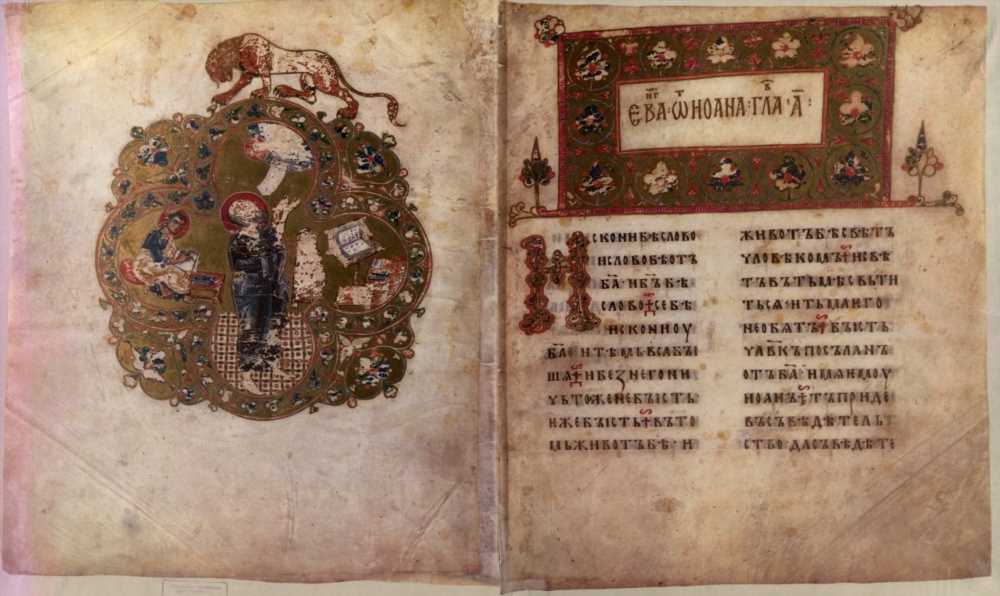 ЕВА·Ѿ ИОАНА·ГЛА·А҃:
ИСКОНИ БѢ СЛОВО
И СЛОВО БѢ ОТЪ
БА҃ И БЪ҃ БѢ
СЛОВО СЕ БѢ
ИСКОНИ ОУ
БА҃ И ТѢМЬ ВЬСА БЫ
ШѦ И БЕЗ НЕГО НИ
ЧЬТОЖЕ НЕ БЫСТЬ
ѤЖЕ БЫСТЬ ВЪ ТО
МЬ ЖИВОТЪ БѢ · И
ЖИВОТЪ БѢ СВѢТЪ
ЧЛОВѢКОМЪ И СВѢ
ТЪ ВЪ ТЬМѢ СВЬТИ
ТЬ СѦ И ТЬМА ѤГО
НЕ ОБѦТЪ БЫСТЬ
ЧЛ҃ВКЪ ПОСЪЛАНЪ
ОТЪ БА҃ ИМѦ ѤМОУ
ИОАНЪ ТЪ ПРИДЕ
ВЪ СЪВѢДѢТЕЛЬ
СТВО ДА СЪВѢДѢТЕ